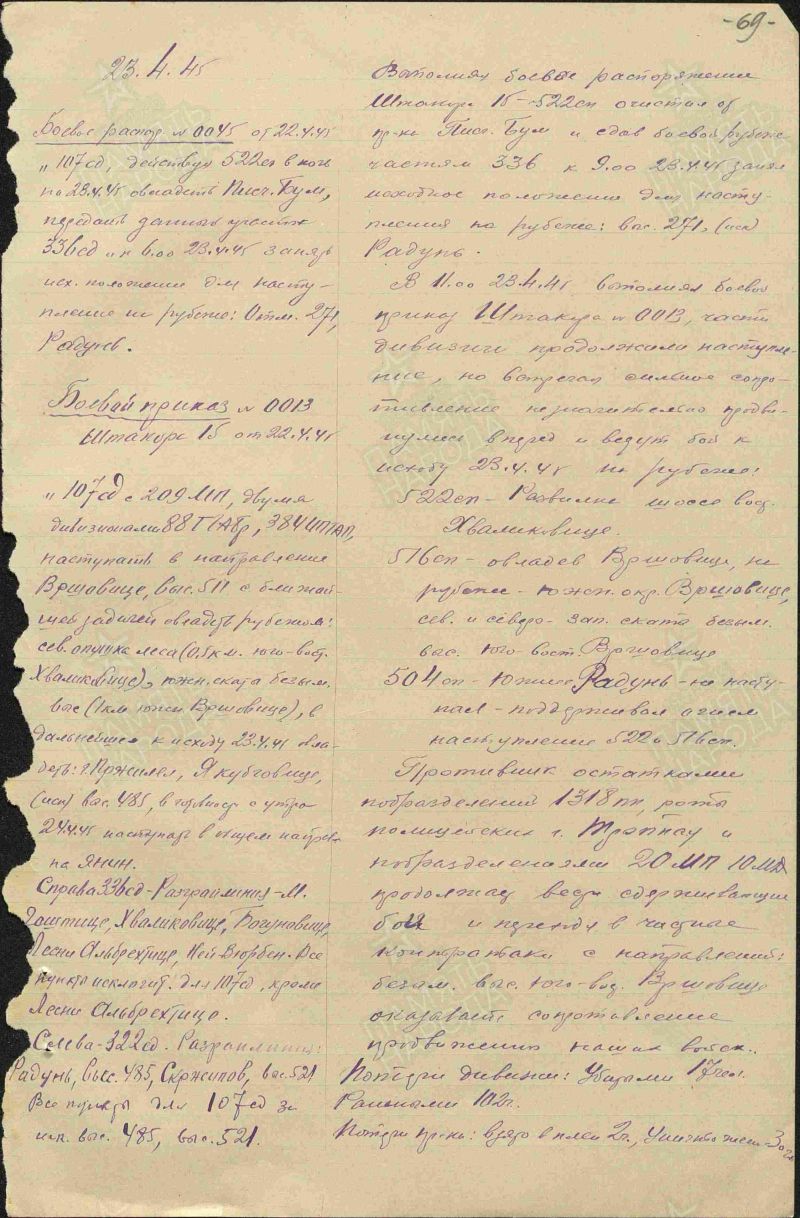 -69-
23.4.45
Боевое распор. № 0045 от 22.4.45
„107сд, действуя 522сп в ночь
на 23.4.45 овладеть Писч. Бум,
передать данный участок
336сд и к 6.00 23.4.45 занять
исх. положение для насту-
пления на рубеже: Отм. 271,
Радунь.
Боевой приказ № 0013
Штакора 15 от 22.4.45
„107сд с 209 МП, двумя
дивизионами 88 ГАБр, 384 ИПТАП,
наступать в направлении
Вршовице, выс. 511 с ближай-
шей задачей овладеть рубежом:
сев. опушка леса (0,5 км. юго-вост.
Хваликовице), южн. ската безым.
выс (1 км южн Вршовице), в
дальнейшем к исходу 23.4.45 овла-
деть: г. Пржилеп, Якубчовице,
(иск) выс. 485, в готовности с утра
24.4.45 наступать в общем направл.
на Янин.
Справа 336сд - Разгранлиния - М.
Гоштице, Хваликовице, Богуновице,
Лесни Альбрехтице, Ней Вюрбен. Все
пункты исключит. для 107сд, кроме
Лесни Альбрехтице.
Слева - 322сд. Разгранлиния:
Радунь, выс. 485, Скржипов, выс. 521
Все пункты для 107сд за
иск. выс. 485, выс. 521.
Выполняя боевое распоряжение
Штакора 15 - 522сп очистил от
пр-ка Писч. Бум и сдав боевой рубеж
частям 336 к 9.00 23.4.45 занял
исходное положение для насту-
пления на рубеже: выс. 271, (иск)
Радунь.
В 11.00 23.4.45 выполняя боевой
приказ Штакора № 0013, части
дивизии продолжали наступле-
ние, но встречая сильное сопро-
тивление незначительно продви-
нулись вперед и ведут бой к
исходу 23.4.45 на рубеже:
522сп - Развилка шоссе вост.
Хваликовице.
516сп - овладев Вршовице, на
рубеже - южн. окр. Вршовице,
сев. и северо-зап. ската безым.
выс. юго-вост. Вршовице
504сп - Южнее Радунь - не насту-
пал - поддерживал огнем
наступление 522 и 516сп.
Противник остатками
подразделений 1318 пп, роты
полицейских г. Трэппау и
подразделениями 20 МП 10 МД
продолжал вести сдерживающие
бои и переходя в частные
контратаки с направлений:
безым. выс. юго-вост. Вршовице
оказывает сопротивление
продвижению наших войск.
Потери дивизии: Убитыми 17 чел.
Ранеными 102 ч.
Потери пр-ка: взято в плен 2 ч., Уничтожено - 30 ч.